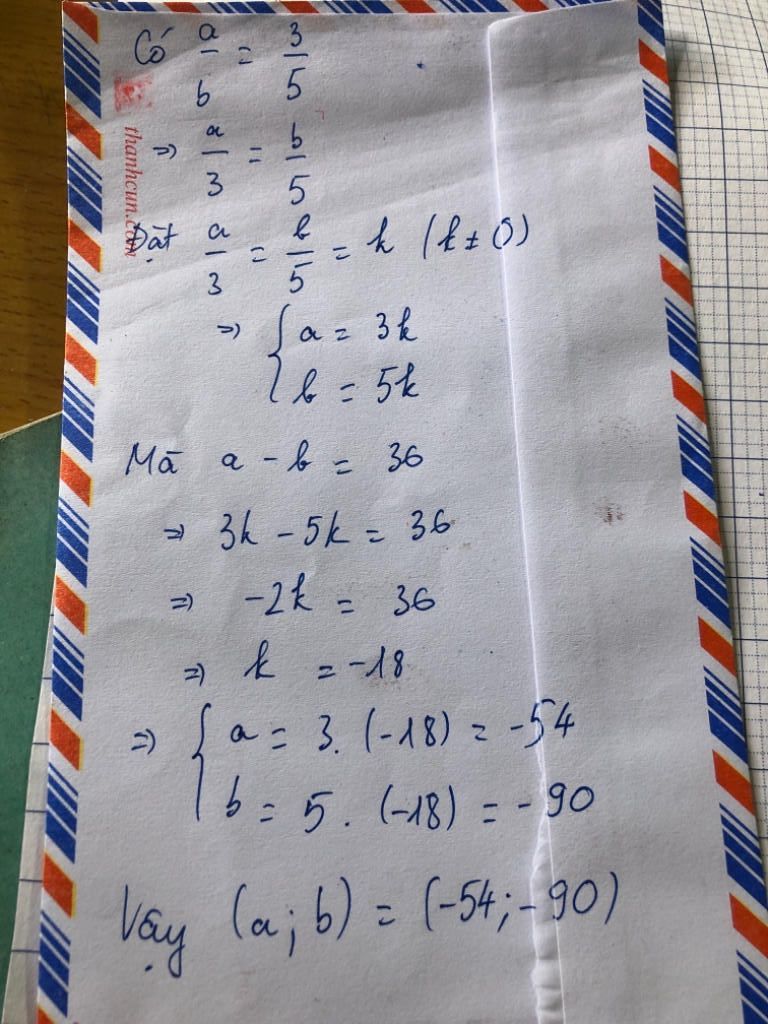 Có a/b = 3/5
=> a/3 = b/5
thanhcun.com
Đặt a/3 = b/5 = k (k ≠ 0)
=> { a = 3k
b = 5k
Mà a - b = 36
=> 3k - 5k = 36
=> -2k = 36
=> k = -18
=> { a = 3. (-18) = -54
b = 5 . (-18) = -90
Vậy (a; b) = (-54; -90)